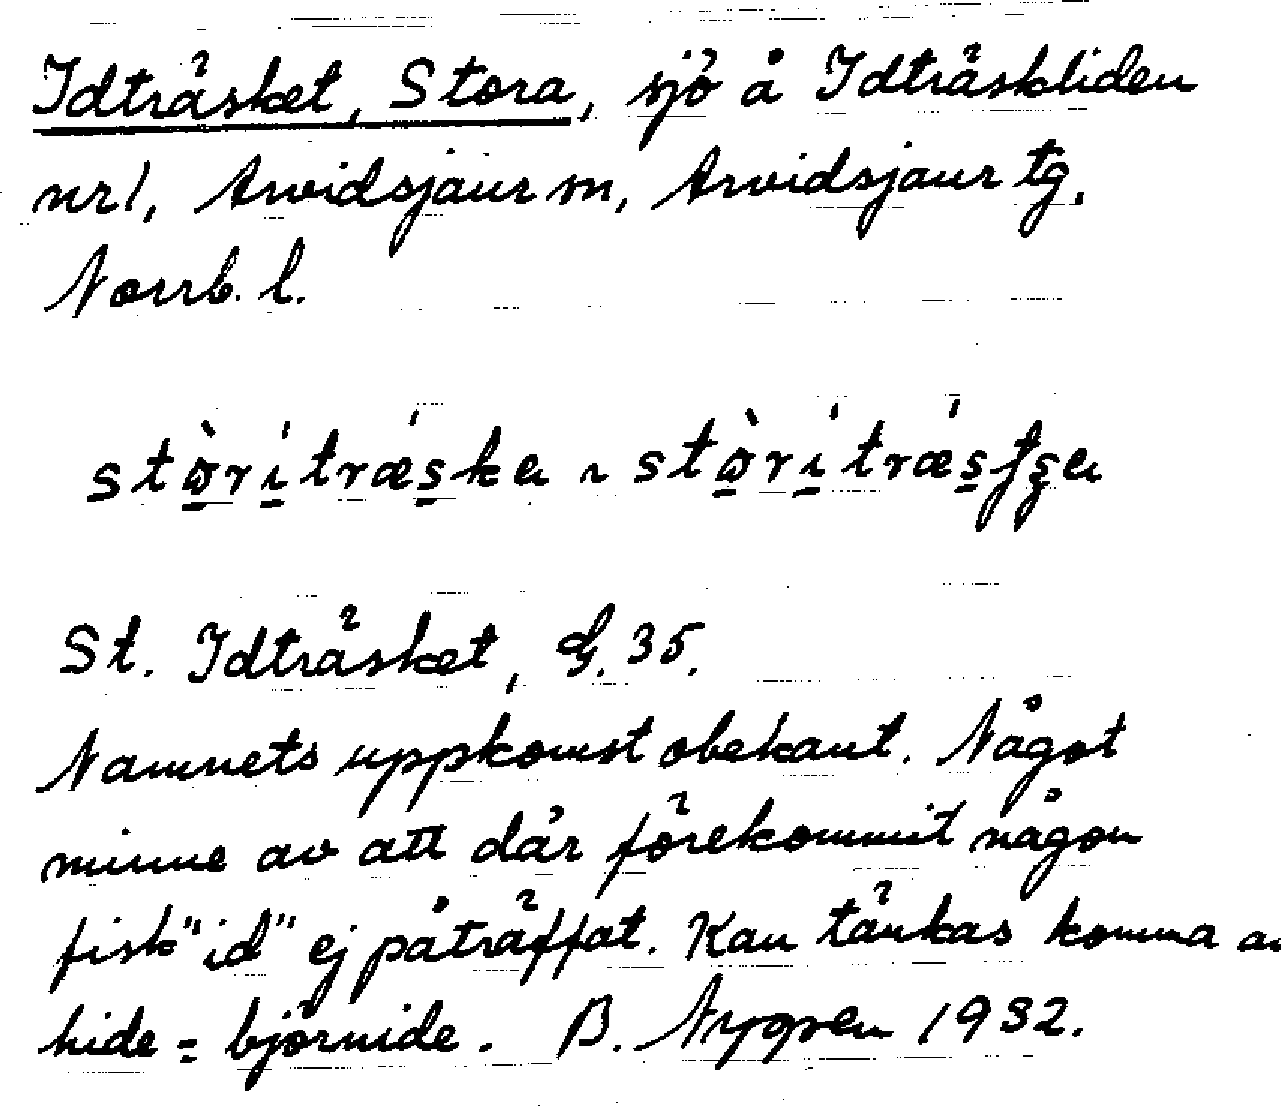 Idträsket, Stora, sjö å Idträskliden
nr 1, Arvidsjaur sn, Arvidsjaur tg,
Norrb. l.
St. Idträsket, G. 35.
Namnets uppkomst obekant. Något
minne av att där förekommit någon
fisk "id" ej påträffat. Kan tänkas komma a
hide = björnide. B. Nygren 1932.